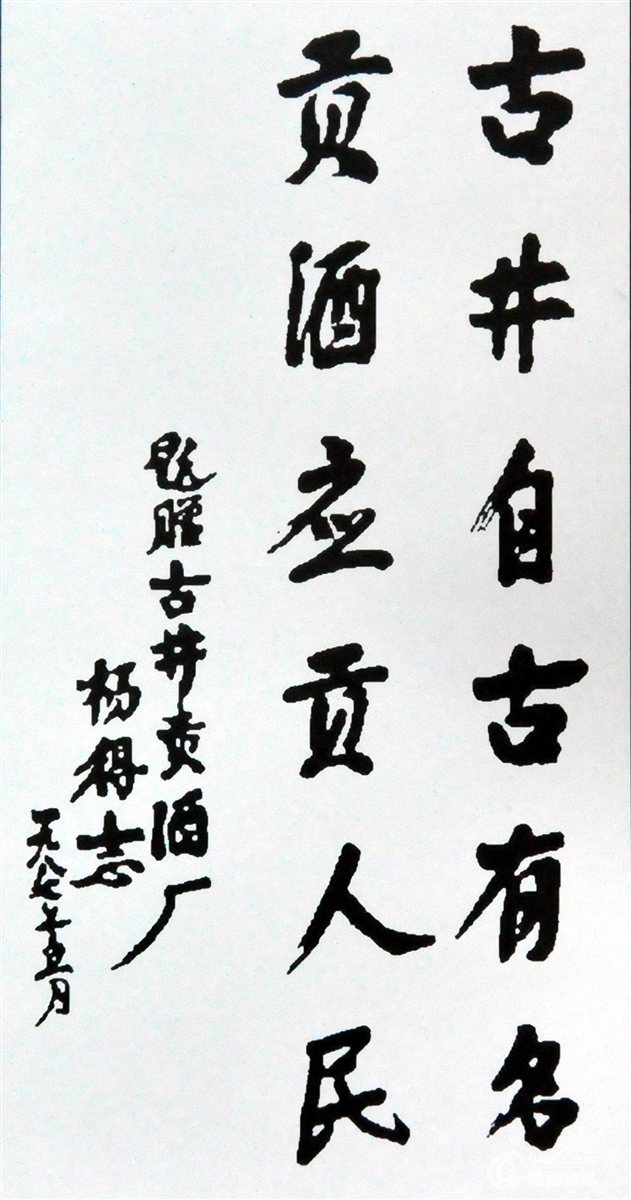 古井自古有名
贡酒应贡人民
题赠古井贡酒厂
杨得志
一九八七年五月